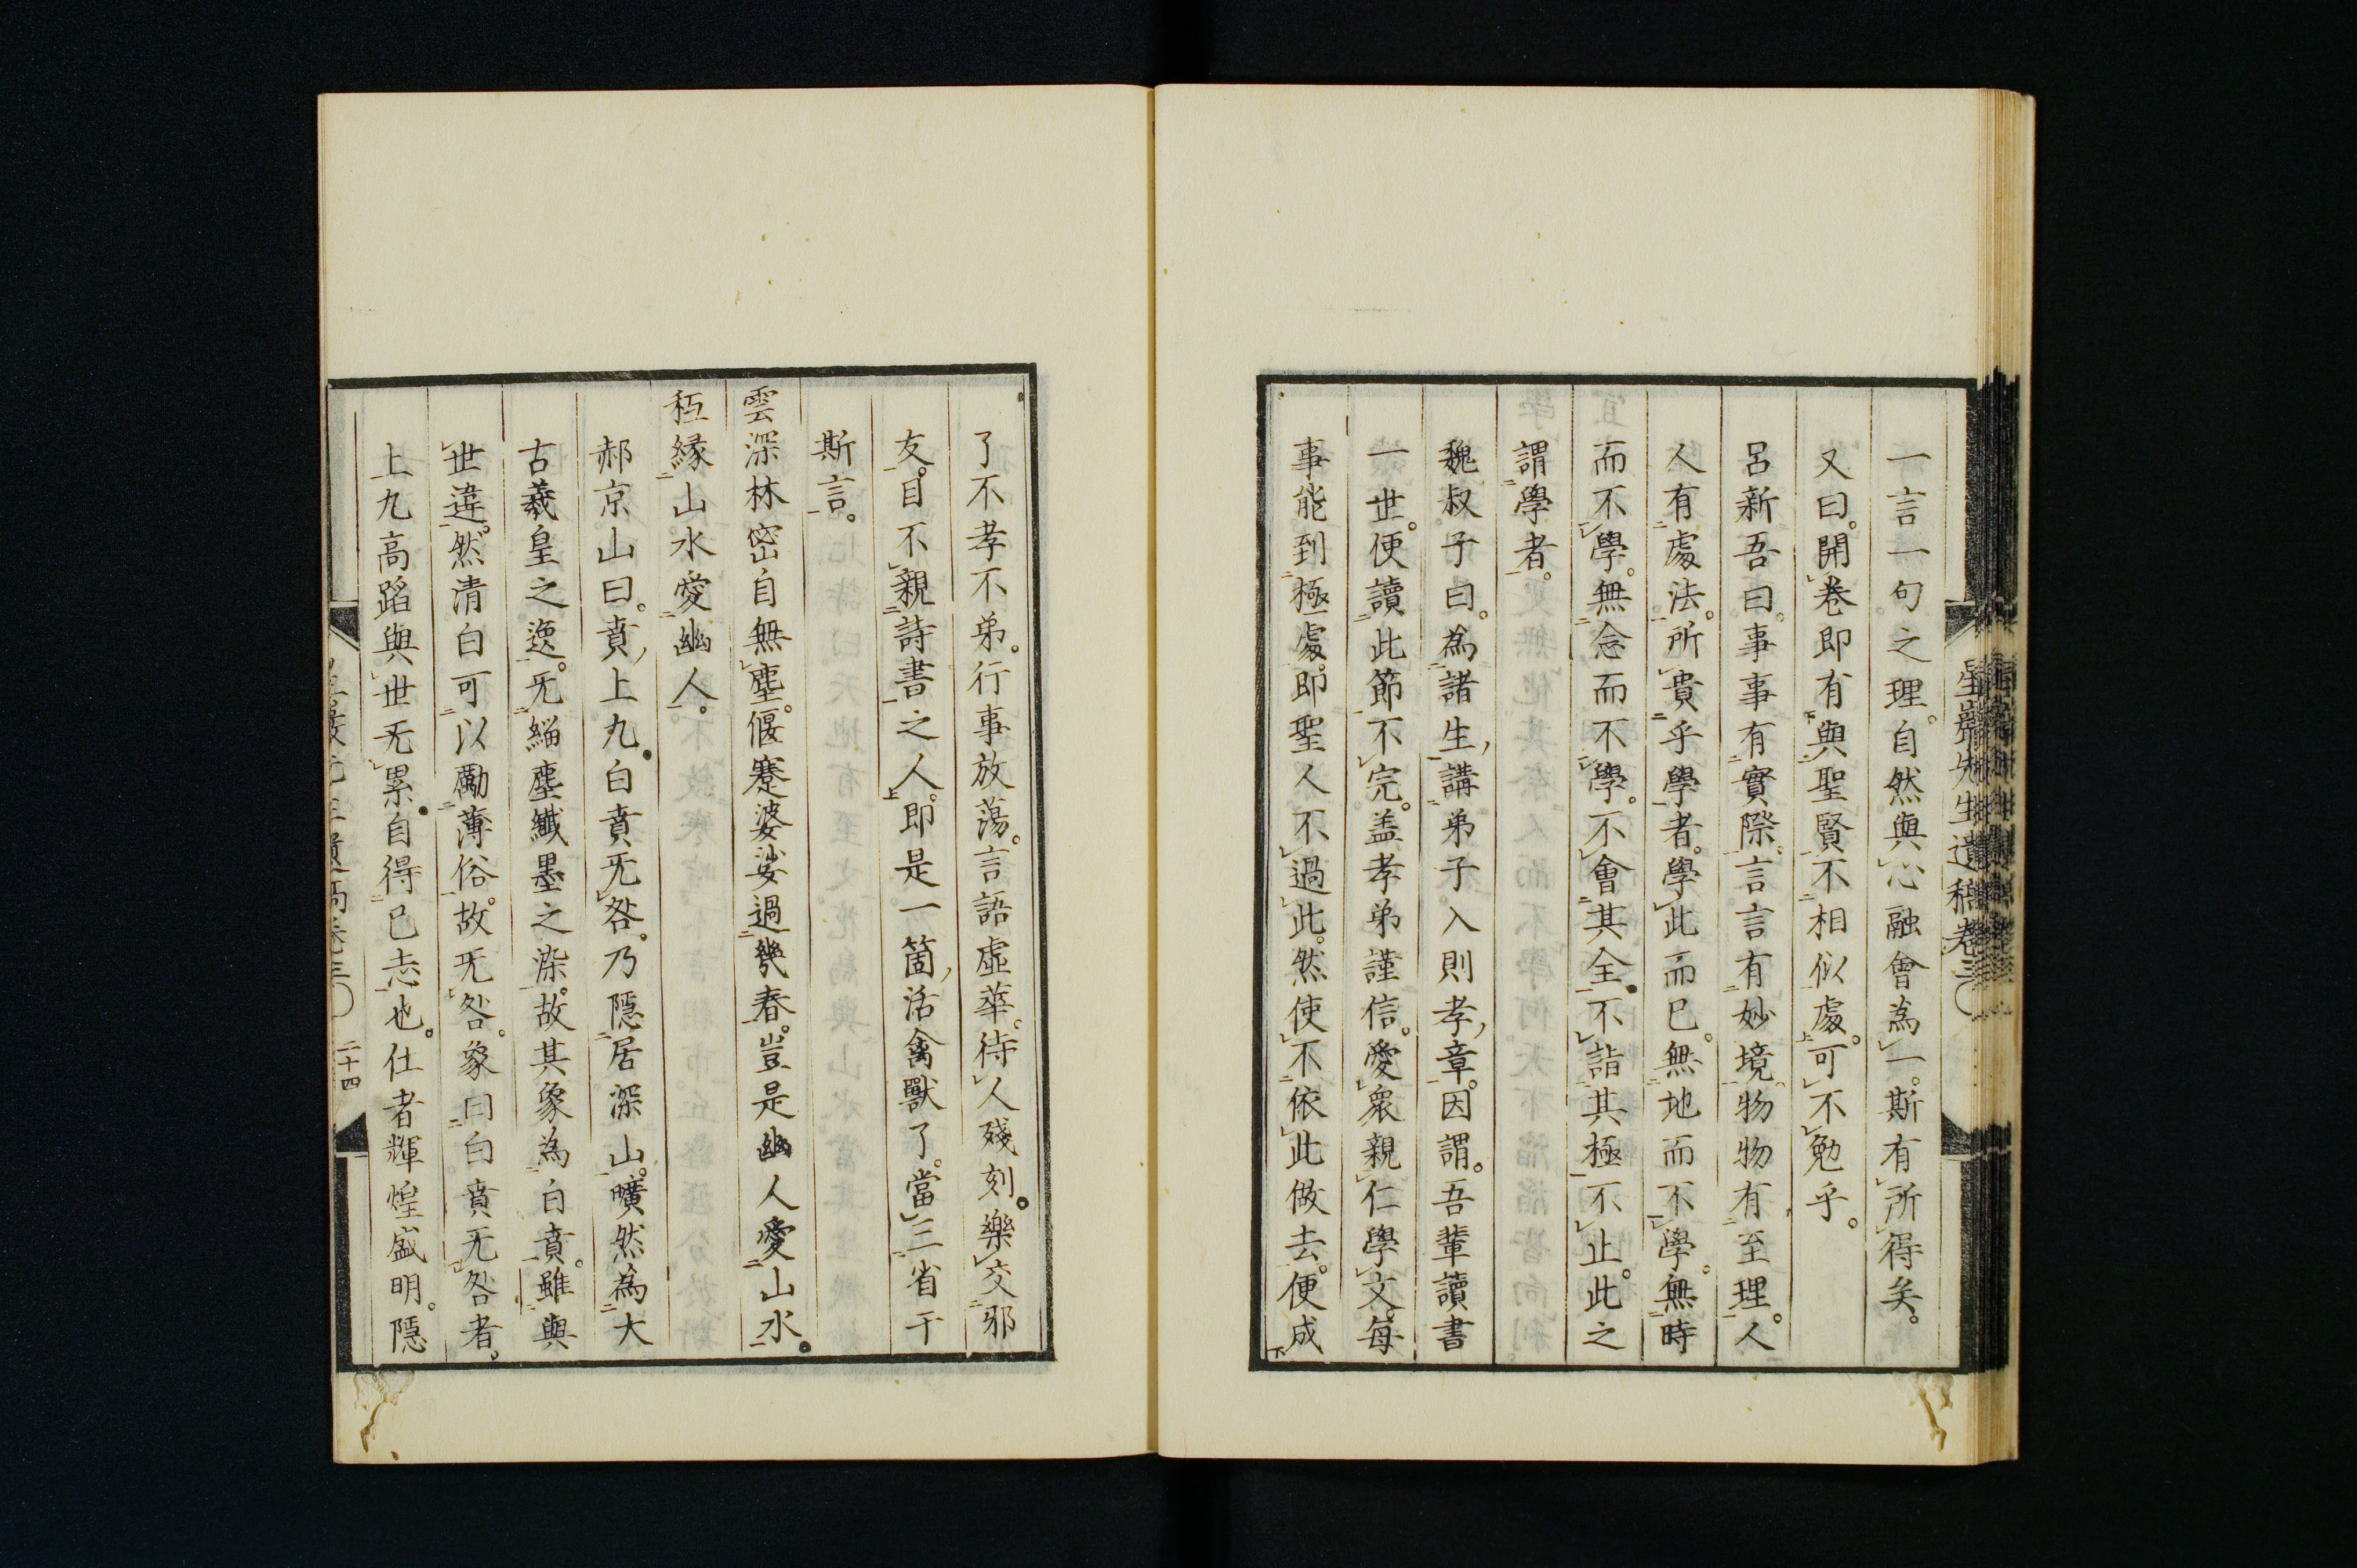 星巖先生遺稿卷三
一言一句之理。自然與心融會為一。斯有所得矣。
又曰。開卷即有與聖賢不相似處。可不勉乎。
呂新吾曰。事事有實際。言言有妙境。物物有至理。人
人有處法。所貴乎學者。學此而已。無地而不學。無時
而不學。無念而不學。不會其全。不詣其極。不止。此之
謂學者。
魏叔子曰。為諸生講弟子入則孝章。因謂。吾輩讀書
一世。便讀此節不完。盖孝弟謹信。愛衆親仁學文。每
事能到極處。即聖人不過此。然使不依此做去。便成
了不孝不弟。行事放蕩。言語虛華。待人殘刻。樂交邪
友。目不親詩書之人。即是一箇活禽獸了。當三省于
斯言。
雲深林密自無塵。偃蹇婆娑過幾春。豈是幽人愛山水。
秖緣山水愛幽人。
郝京山曰。賁上九。白賁无咎。乃隱居深山。曠然為大
古羲皇之逸。无緇塵纖墨之染。故其象為白賁。雖與
世違。然清白可以勵薄俗。故无咎。象曰白賁无咎者。
上九高蹈與世无累。自得已志也。仕者輝煌盛明。隱
二十四